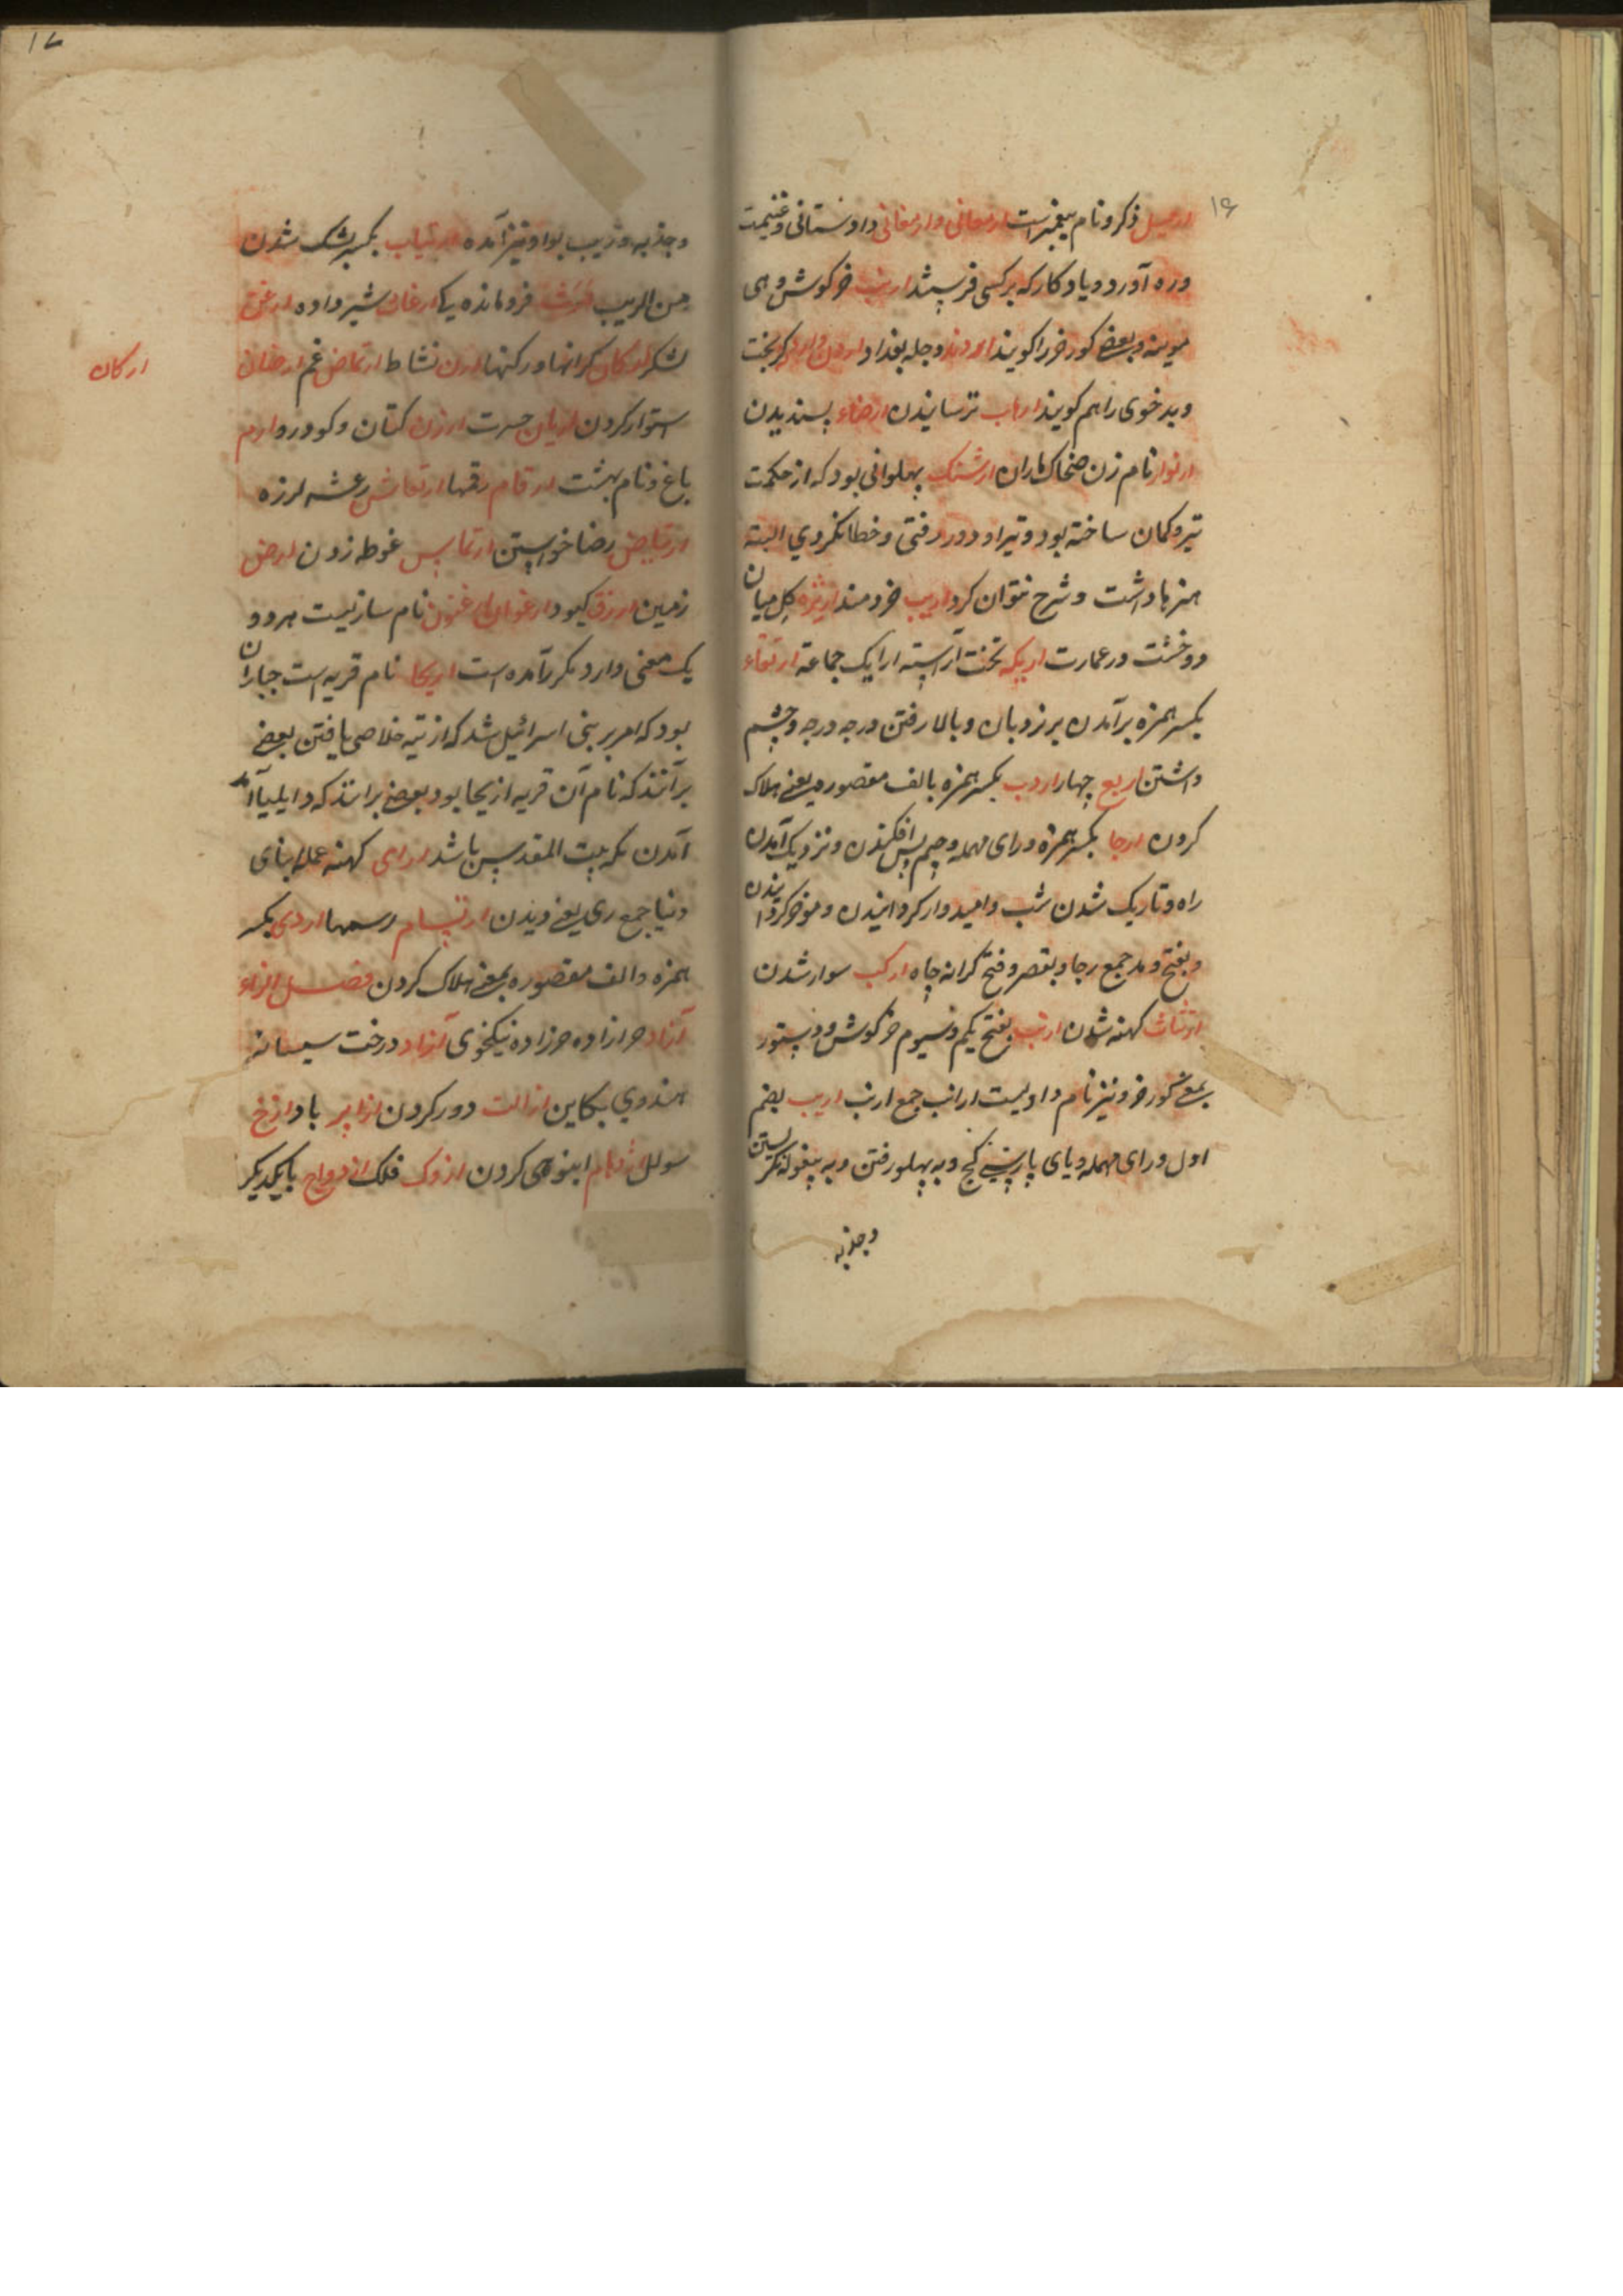 ۱۶
ارمیل ذکر و نام پیغمبریست ارمغانی و ارمغانی داوستانی و غنیمت
و ره آورد و یادگار که بر کسی فرستند ارنب خرگوش و هی
موینه و بعضی کور خر را گویند اروند دجله بغداد
و بدخوی را هم گویند ارهاب ترسانیدن ارضاء پسندیدن
ارنواز نام زن ضحاک ماران ارشنک پهلوانی بود که از حکمت
تیر و کمان ساخته بود و تیر او دور رفتی و خطا نکردی البته
هنرها داشت و شرح نتوان کرد اریب خردمند ارنژه کل میان
دو خشت در عمارت اریکه تخت آراسته ارایک جماعة ارتقاء
بکسر همزه برآمدن بر نردبان و بالا رفتن درجه درجه و چشم
داشتن اربع چهار اردب بکسر همزه بالف مقصوره یعنی هلاک
کردن ارجا بکسر همزه و رای مهمله و جیم پس افکندن و نزدیک آمدن
راه و تاریک شدن شب و امیدوار گردانیدن و موخر گردانیدن
و بفتح و مد جمع رجا و بقصر و فتح کرانه چاه ارکب سوار شدن
ارثثاث کهنه شدن ارنب بفتح یکم و سیوم خرگوش و دستور
بمعنی کور خر و نیز نام دا و لیست ارانب جمع ارنب اریب بضم
اول و رای مهمله و یای پارسی کج و به پهلو رفتن و به پیغوله نگریستن
و جذبه
۱۷
و جذبه و زیب بواو نیز آمده ارتیاب بکسر بشک شدن
من الریب فرومانده یکا ارغان شیر داده ارغن
لشکر ارکان کرانها و رکنها ارن نشاط ارتماض غم
ارکان
استوار کردن ارمان حسرت ارزن کتان و کودرو ارم
باغ و نام بهشت ارقام رقمها ارتعاش رعشه لرزه
ارتیاض رضا خواستن ارتماس غوطه زدن ارض
زمین ارزق کبود ارغوان ارغنون نام سازیست هر دو
یک معنی دارد مکرر آمده است اریحا نام قریه است جباران
بود که امر بر بنی اسرائیل شد که از تیه خلاصی یافتن بعضی
برآنند که نام آن قریه اریحا بود بعضی برانند که دایلیا آمد
آمدن بکه بیت المقدس باشد ارای کهنه عمله بنای
دنیا جمع ری یعنی دیدن ارتسام رسمها اردی بکسر
همزه و الف مقصوره بمعنی هلاک کردن فصل الزاء
آزاد حرازاده حرزاده نیکخوی آزاد درخت
هندوی بکاین ازالت دور کردن ازابر باد ازخ
سولل ازدهام انبوهی کردن ازوک فلک ازدواج با یکدیگر